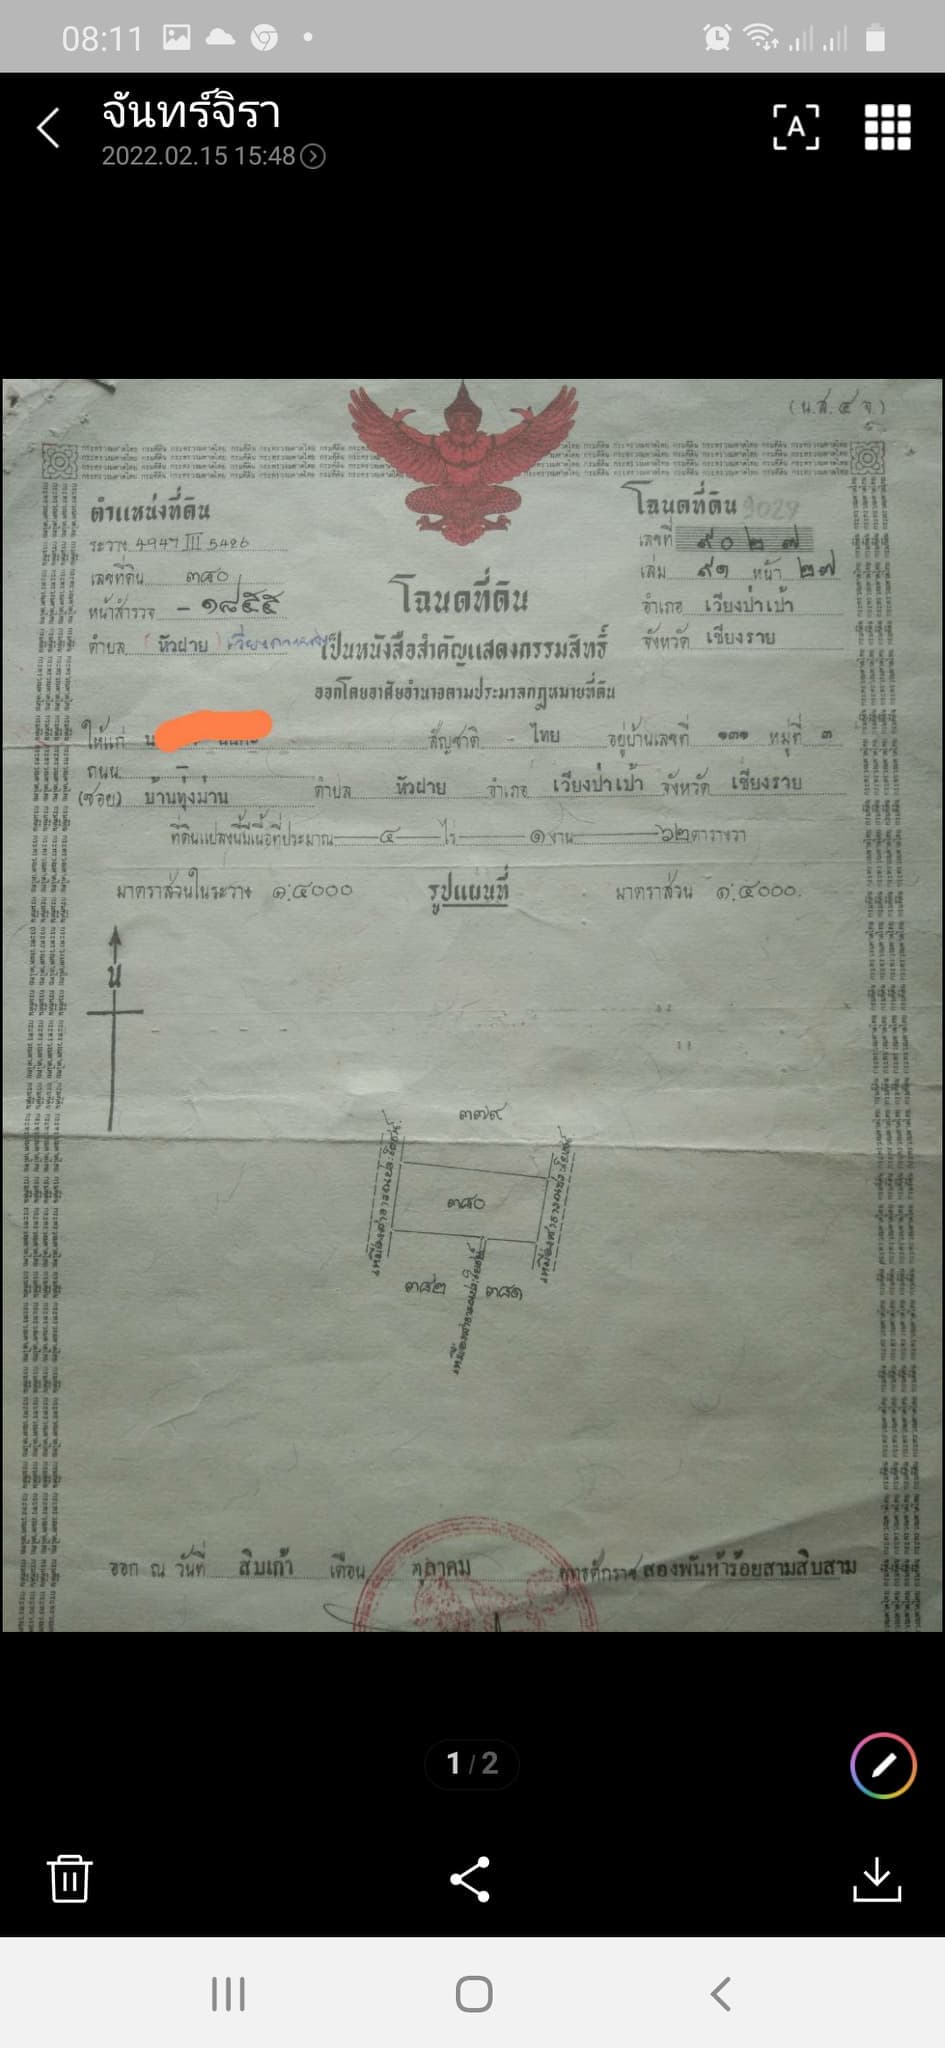 08:11
จันทร์จิรา
2022.02.15 15:48
(น.ส.๔ จ.)
ตำแหน่งที่ดิน
ระวาง 4947 III 5426
เลขที่ดิน ๓๘๐
หน้าสำรวจ - ๑๘๕๕
ตำบล (หัวฝาย)
โฉนดที่ดิน 9029
เลขที่ ๙๐๒๗
เล่ม ๙๑ หน้า ๒๗
อำเภอ เวียงป่าเป้า
จังหวัด เชียงราย
โฉนดที่ดิน
เป็นหนังสือสำคัญแสดงกรรมสิทธิ์
ออกโดยอาศัยอำนาจตามประมวลกฎหมายที่ดิน
ให้แก่ สัญชาติ - ไทย อยู่บ้านเลขที่ ๑๓๑ หมู่ที่ ๓
ถนน - (ซอย) บ้านทุ่งม่าน ตำบล หัวฝาย อำเภอ เวียงป่าเป้า จังหวัด เชียงราย
ที่ดินแปลงนี้มีเนื้อที่ประมาณ ๔ ไร่ ๑ งาน ๖๒ ตารางวา
มาตราส่วนในระวาง ๑:๔๐๐๐ รูปแผนที่ มาตราส่วน ๑:๔๐๐๐
น
๓๗๙
เหมืองสาธารณประโยชน์
๓๘๐
เหมืองสาธารณประโยชน์
๓๘๒
เหมืองสาธารณประโยชน์
๓๘๑
ออก ณ วันที่ สิบเก้า เดือน ตุลาคม พุทธศักราช สองพันห้าร้อยสามสิบสาม
1/2